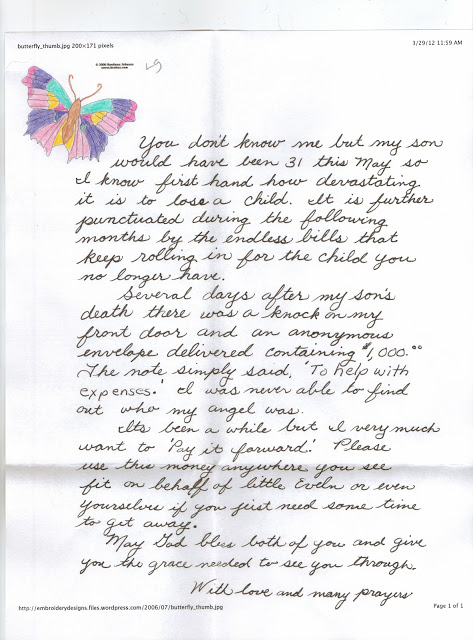 butterfly_thumb.jpg 200×171 pixels
3/29/12 11:59 AM
You don't know me but my son
would have been 31 this May so
I know first hand how devastating
it is to lose a child. It is further
punctuated during the following
months by the endless bills that
keep rolling in for the child you
no longer have.
Several days after my son's
death there was a knock on my
front door and an anonymous
envelope delivered containing $1,000.00
The note simply said, 'To help with
expenses.' I was never able to find
out who my angel was.
Its been a while but I very much
want to 'Pay it forward'. Please
use this money anywhere you see
fit on behalf of little Eveln or even
yourselves if you feist need some time
to get away.
May God bless both of you and give
you the grace needed to see you through.
With love and many prayers
http://embroiderydesigns.files.wordpress.com/2006/07/butterfly_thumb.jpg
Page 1 of 1